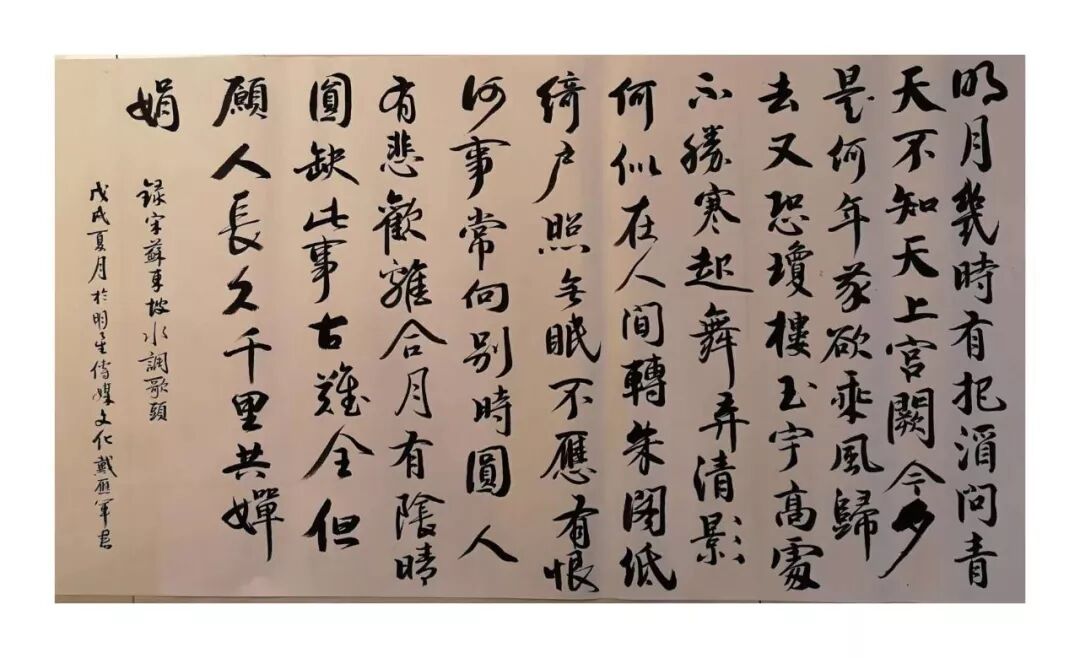 明月幾時有把酒問青
天不知天上宮闕今夕
是何年我欲乘風歸
去又恐瓊樓玉宇高處
不勝寒起舞弄清影
何似在人間轉朱閣低
綺户照無眠不應有恨
何事常向别時圓人
有悲歡離合月有陰晴
圓缺此事古難全但
願人長久千里共嬋
娟
録宋蘇東坡水調歌頭
戊戌夏月於明星傳媒文化戴雁軍書